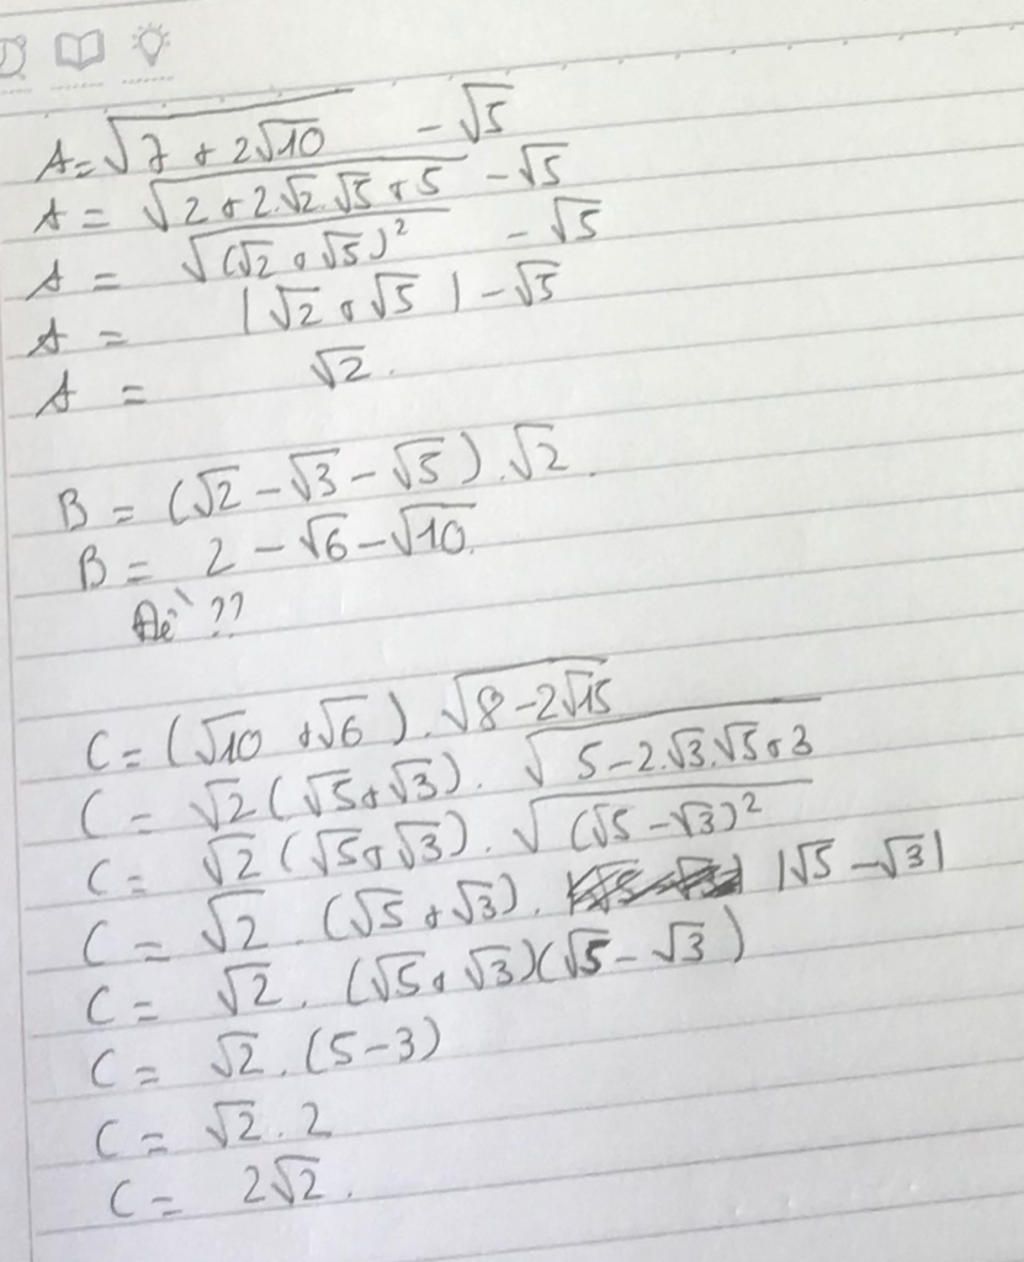 A = √(7 + 2√10) - √5
A = √(2 + 2.√2.√5 + 5) - √5
A = √((√2 + √5)²) - √5
A = |√2 + √5| - √5
A = √2.
B = (√2 - √3 - √5).√2.
B = 2 - √6 - √10.
Đề ??
C = (√10 + √6).√(8 - 2√15)
C = √2(√5 + √3).√(5 - 2.√3.√5 + 3)
C = √2(√5 + √3).√((√5 - √3)²)
C = √2.(√5 + √3). |√5 - √3|
C = √2.(√5 + √3)(√5 - √3)
C = √2.(5 - 3)
C = √2.2
C = 2√2.